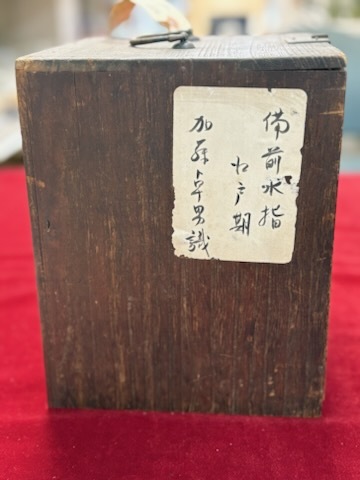 備前水指
江戸期
加藤卓男識